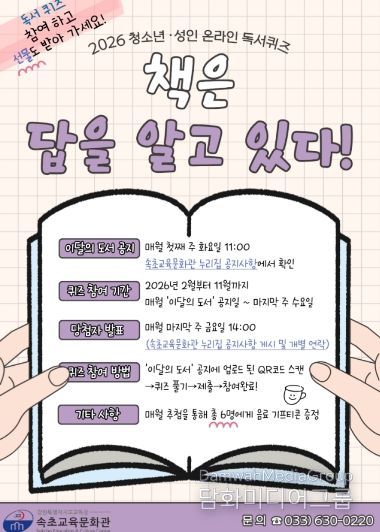 독서 퀴즈
참여 하고
선물도 받아 가세요!
2026 청소년·성인 온라인 독서퀴즈
책은
답을 알고 있다!
이달의 도서 공지 매월 첫째 주 화요일 11:00
속초교육문화관 누리집 공지사항에서 확인
퀴즈 참여 기간 2026년 2월부터 11월까지
매월 '이달의 도서' 공지일 ~ 마지막 주 수요일
당첨자 발표 매월 마지막 주 금요일 14:00
(속초교육문화관 누리집 공지사항 게시 및 개별 연락)
퀴즈 참여 방법 '이달의 도서' 공지에 업로드 된 QR코드 스캔
→퀴즈 풀기→제출→참여완료!
기타 사항 매월 추첨을 통해 총 6명에게 음료 기프티콘 증정
DamwahMediaGroup
담화미디어그룹
강원특별자치도교육청
속초교육문화관
문의 ☎ 033) 630-0220